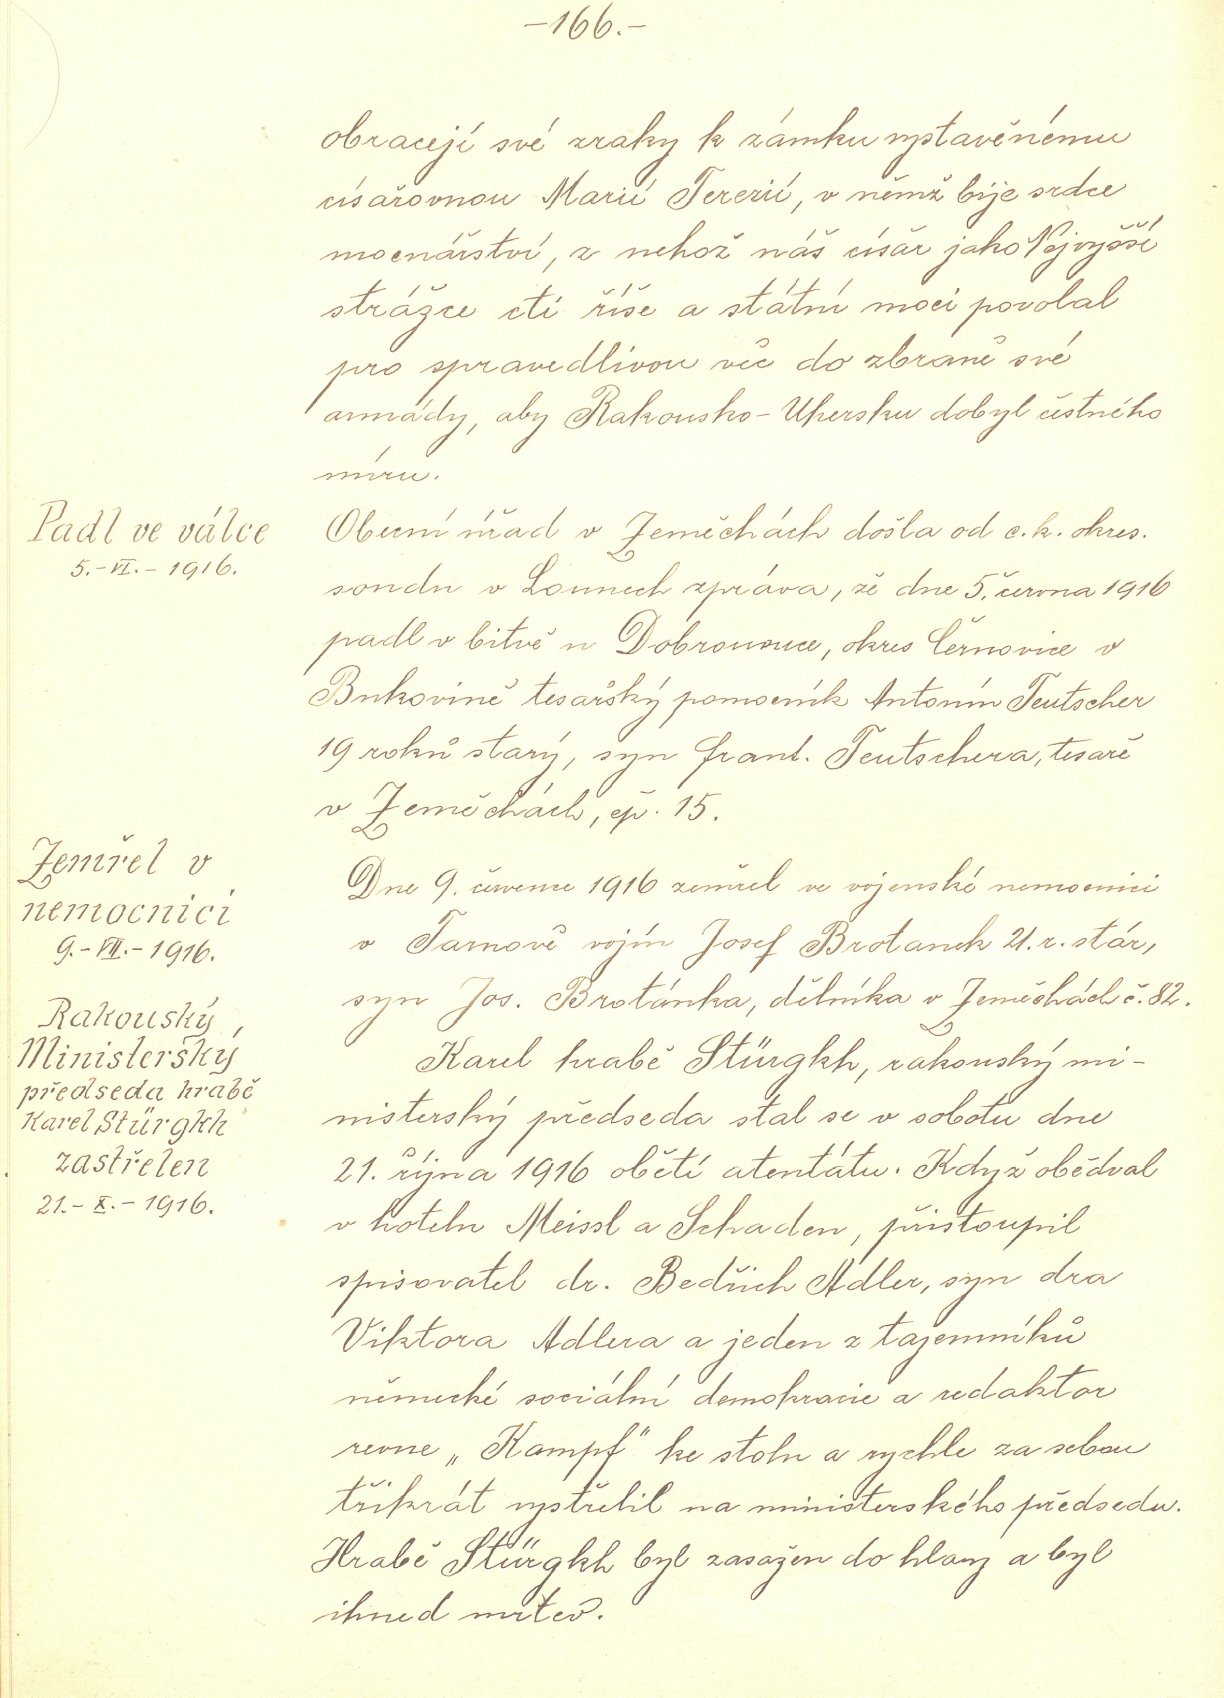 -166.-
obracejí své zraky k zámku vystavěnému
císařovnou Marií Terezií, v němž bije srdce
mocnářství, z nehož náš císař jako Nejvyšší
strážce cti říše a státní moci povolal
pro spravedlivou věc do zbraně své
armády, aby Rakousko-Uhersku dobyl čestného
míru.
Padl ve válce
5.-VI.-1916.
Obecní úřad v Zeměchách došla od c.k. okres.
soudu v Lounech zpráva, že dne 5. června 1916
padl v bitvě u Dobronouce, okres Černovice v
Bukovině tesařský pomocník Antonín Teutscher
19 roků starý, syn Frant. Teutschera, tesaře
v Zeměchách, čp. 15.
Zemřel v
nemocnici
9.-VII.-1916.
Dne 9. července 1916 zemřel ve vojenské nemocnici
v Tarnově vojín Josef Brotánek 21.r. stár,
syn Jos. Brotánka, dělníka v Zeměchách č. 82.
Rakouský
Ministerský
předseda hrabě
Karel Stürgkh
zastřelen
21.-X.-1916.
Karel hrabě Stürgkh, rakouský mi-
nisterský předseda stal se v sobotu dne
21. října 1916 obětí atentátu. Když obědval
v hotelu Meissl a Schaden, přistoupil
spisovatel dr. Bedřich Adler, syn dra
Viktora Adlera a jeden z tajemníků
německé sociální demokracie a redaktor
revue „Kampf" ke stolu a rychle za sebou
třikrát vystřelil na ministerského předsedu.
Hrabě Stürgkh byl zasažen do hlavy a byl
ihned mrtev.